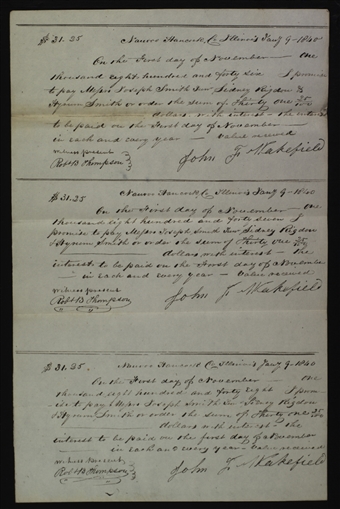 $31.25 Nauvoo Hancock Co Illinois Jany 9 - 1840
On the First day of November — One
thousand eight hundred and forty six I promise
to pay Messrs Joseph Smith Senr Sidney Rigdon &
Hyrum Smith or order the sum of Thirty One 25/100
dollars with interest - the interest
to be paid on the First day of November —
in each and every year — Value received
witness present
Robt B Thompson
John F Wakefield
$31.25 Nauvoo Hancock Co Illinois Jany 9 - 1840
On the First day of November — One
thousand eight hundred and forty seven I
promise to pay Messrs Joseph Smith Senr Sidney Rigdon
& Hyrum Smith or order the sum of Thirty One 25/100
dollars with interest — the
interest to be paid on the First day of November
— in each and every year — Value received
witness present
Robt B Thompson
John F Wakefield
$31.25. Nauvoo Hancock Co Illinois Jany 9 - 1840
On the First day of November — One
thousand eight hundred and forty Eight I
to pay Messrs Joseph Smith Senr Sidney Rigdon
& Hyrum Smith or order the sum of Thirty One 25/100
dollars with interest - the
interest to be paid on the first day of November
— in each and every year - Value received
witness present
Robt B Thompson
John F Wakefield